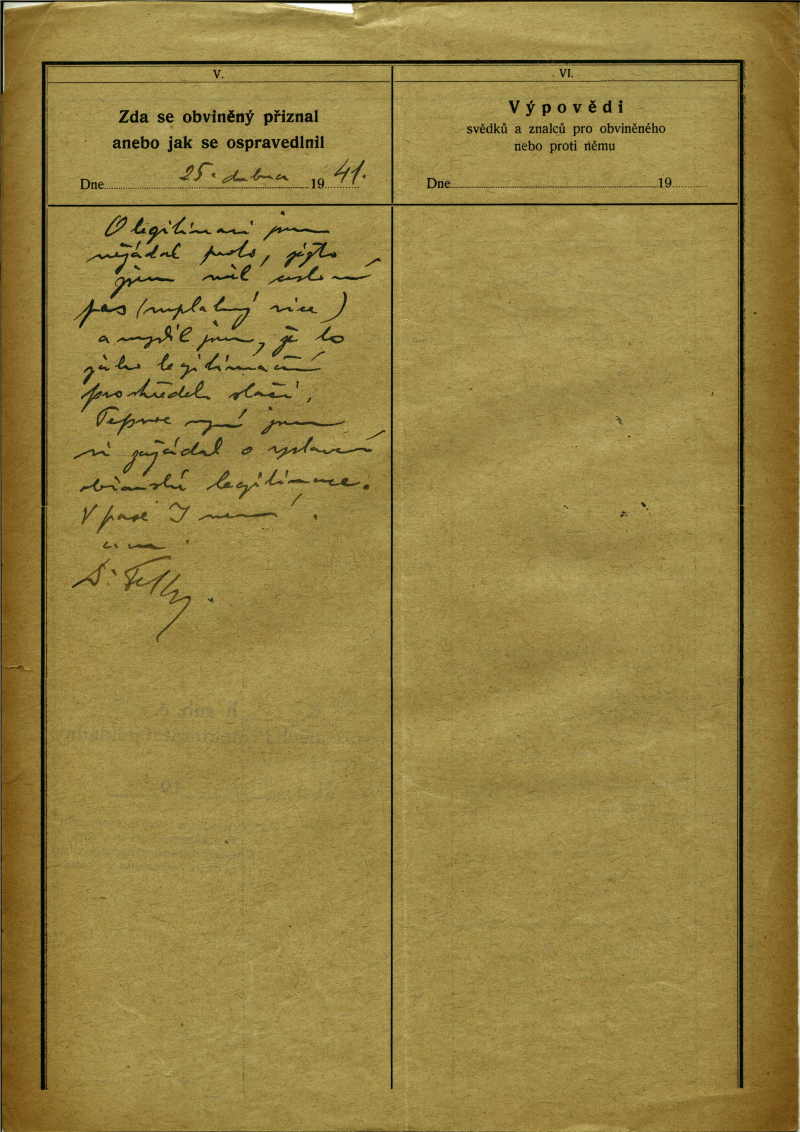 V.
Zda se obviněný přiznal
anebo jak se ospravedlnil
Dne 25. dubna 1941.
O legitimaci jsem
nežádal proto, ježto
jsem měl cestovní
pas (neplatný více)
a myslil jsem, že to
jako legitimační
prostředek stačí.
Teprve nyní jsem
si zažádal o vystavení
občanské legitimace.
V pase J není.
VI.
Výpovědi
svědků a znalců pro obviněného
nebo proti němu
Dne 19